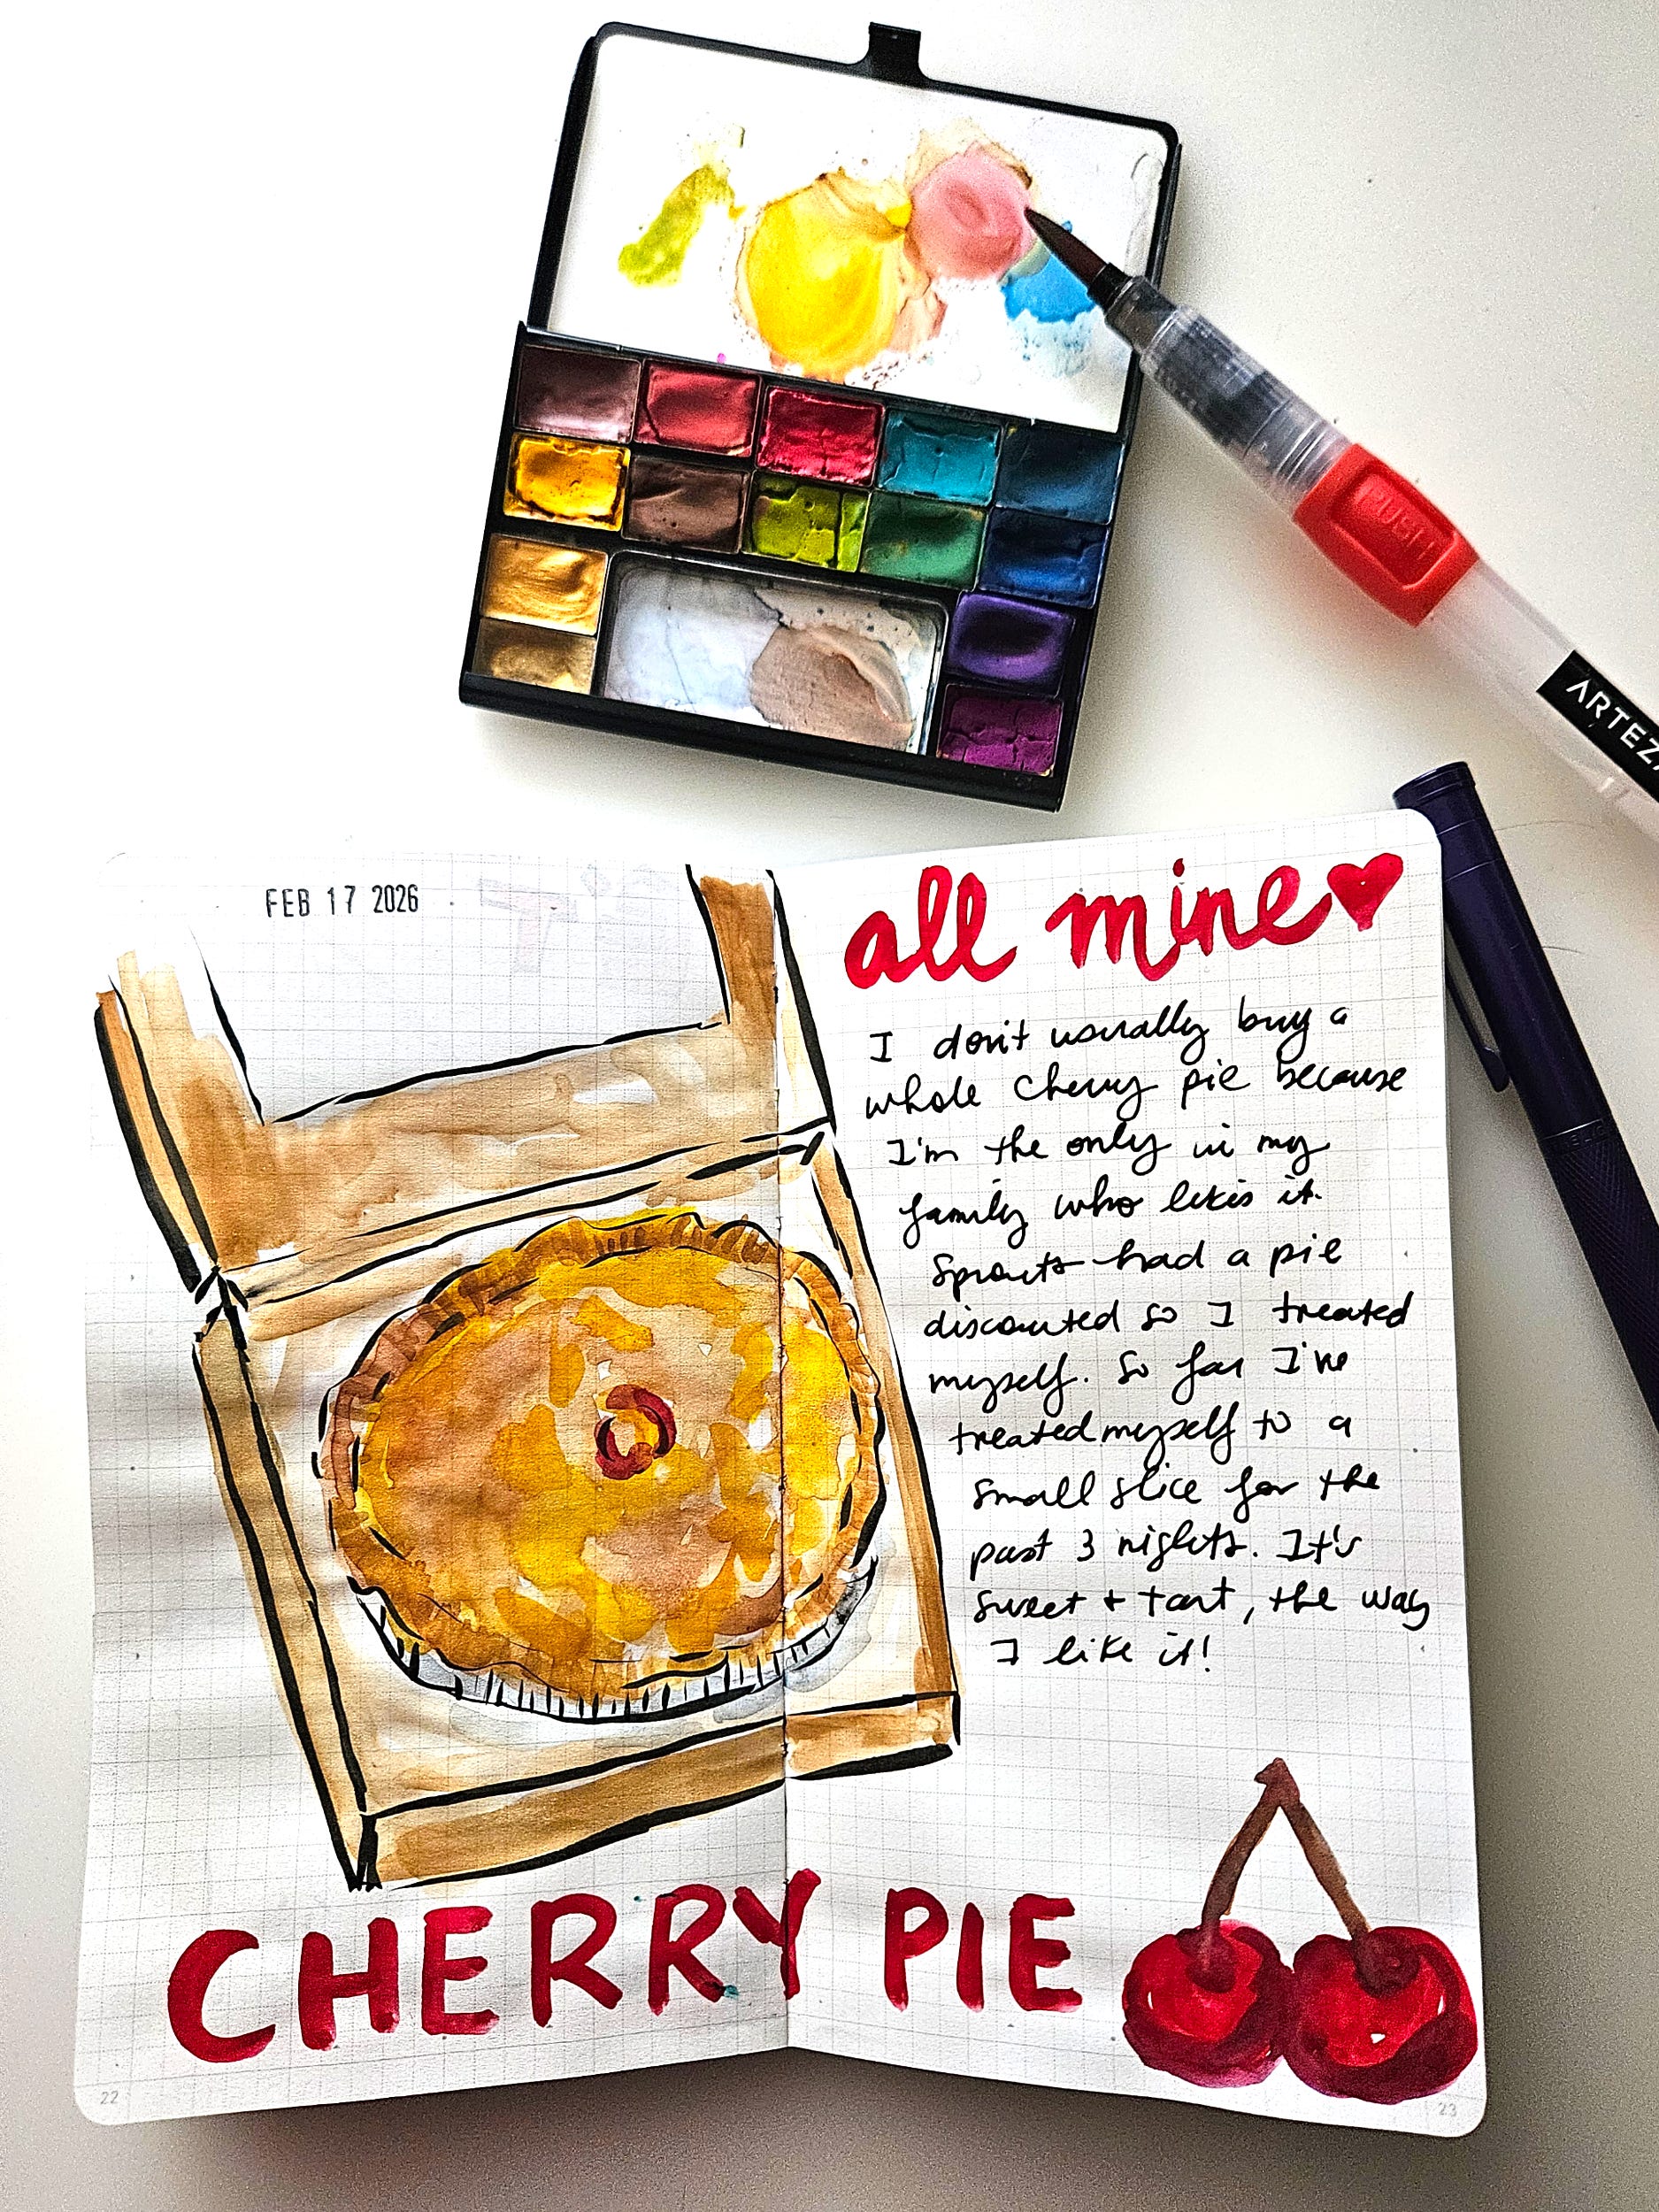 PUSH
ARTEZA
FEB 17 2026
all mine
I don't usually buy a
whole cherry pie because
I'm the only in my
family who likes it.
Sprouts had a pie
discounted so I treated
myself. So far I've
treated myself to a
small slice for the
past 3 nights. It's
sweet + tart, the way
I like it!
CHERRY PIE
22
23